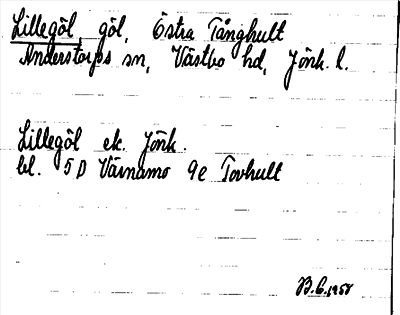 Lillegöl, göl, Östra Tånghult
Anderstorps sn, Västbo hd, Jönk. l.
Lillegöl ek. Jönk.
bl. 5D Värnamo 9e Tovhult
B.C. 1958